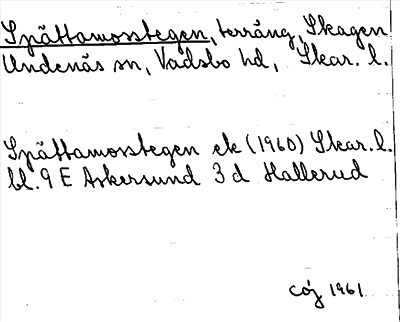 Spättamosstegen, terräng, Skagen
Undenäs sn, Vadsbo hd, Skar. l.
Spättamosstegen ek (1960) Skar. l.
bl. 9 E Askersund 3 d Hallerud
1961